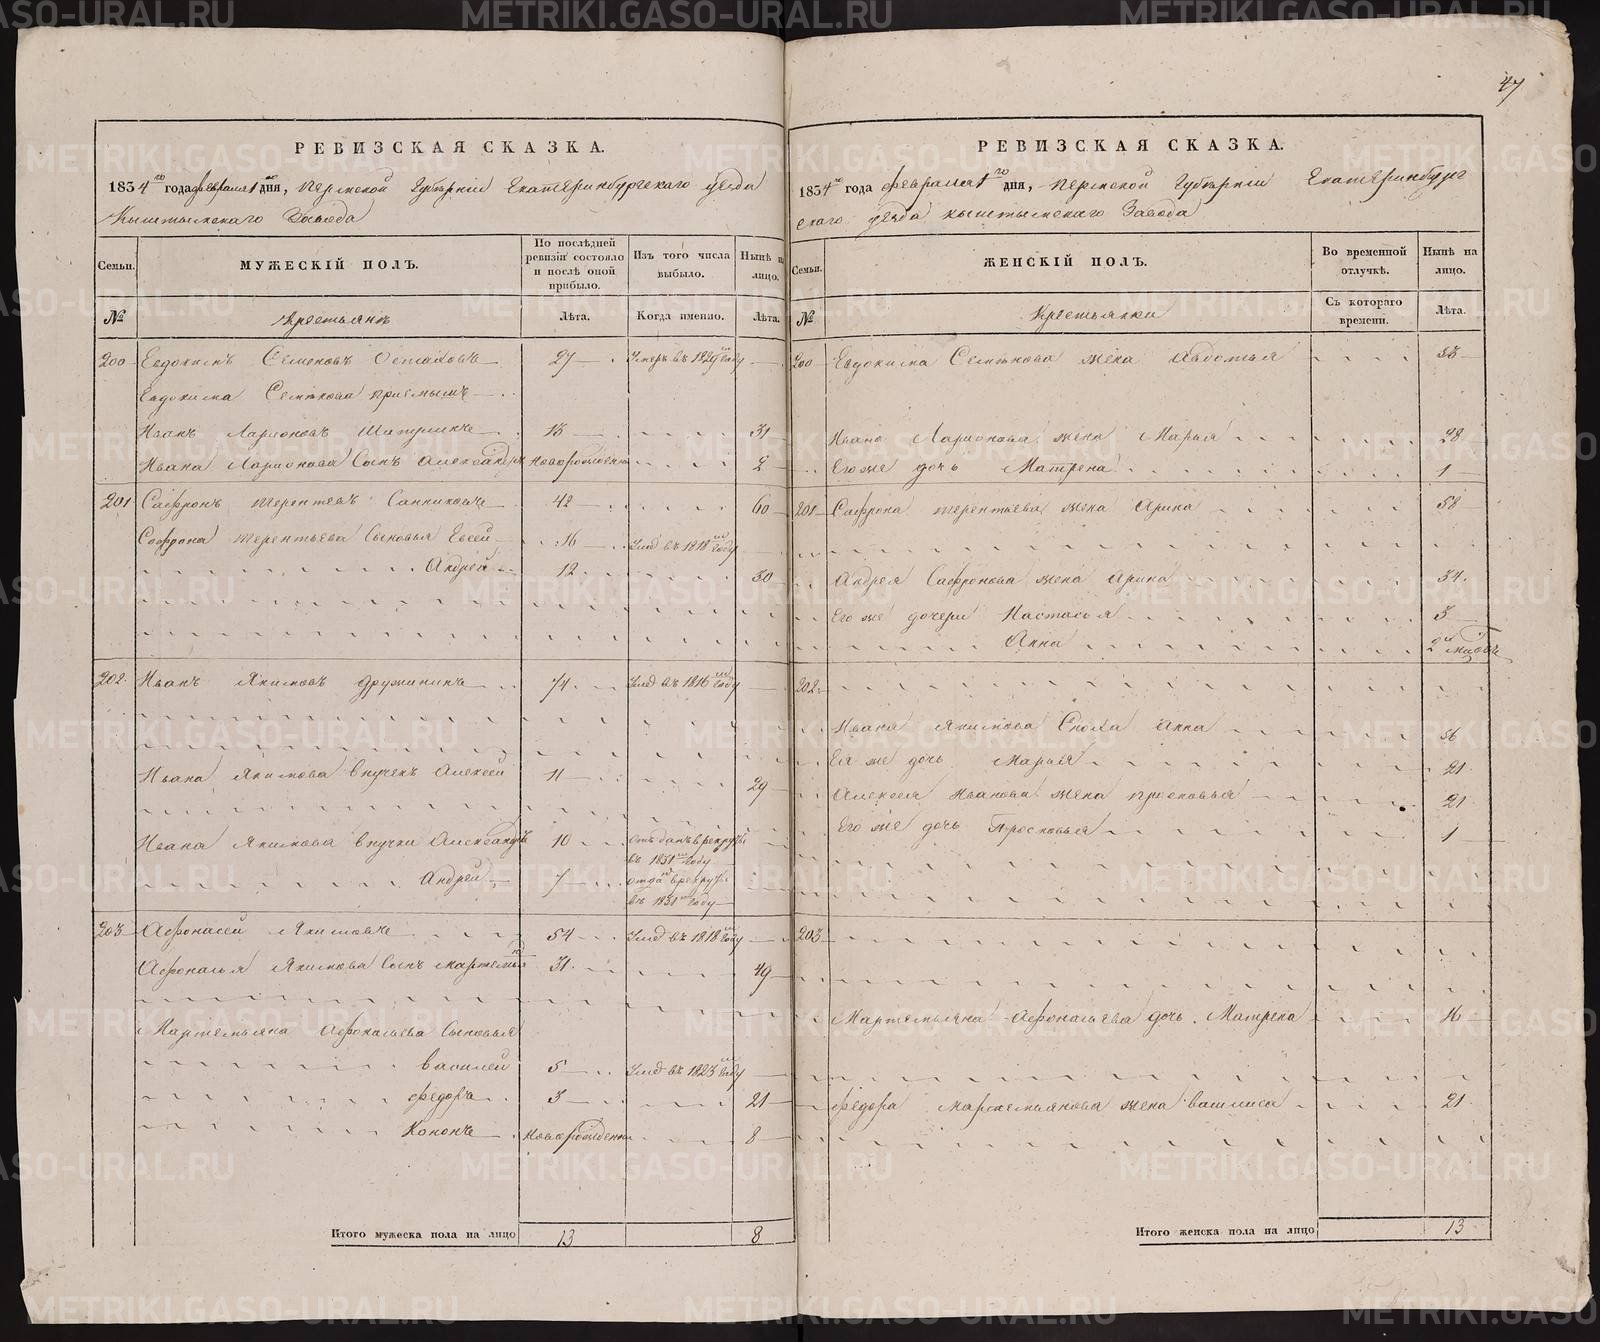 47
РЕВИЗСКАЯ СКАЗКА.
1834го года февраля 1го дня, Пермской Губѣрнiи Екатѣринбургскаго уезда
Кыштымскаго Завода
Семьи.
МУЖЕСКІЙ ПОЛЪ.
По послѣдней ревизіи состояло и послѣ оной прибыло.
Изъ того числа выбыло.
Нынѣ на лицо.
№
Крестьянъ
Лѣта.
Когда именно.
Лѣта.
200 Евдокимъ Семеновъ 27 Умеръ въ 1829м Году
Евдокима Семѣнова приемышъ
Иванъ Ларионовъ 13 31
Ивана Ларионова Сынъ Александръ Новорожденъ 2
201 Сафронъ Терентевъ Санниковъ 42 60
Сафрона Терентьева Сыновья Евсей 16 Умеръ въ 1818м Году
Андрей 12 30
202 Иванъ Якимовъ Дружининъ 74 Умеръ въ 1816м Году
Ивана Якимова Внучекъ Алексей 11 29
Ивана Якимова внучки Александръ 10 отъданъ врекруты
въ 1831м Году
Андрей 7 отда врекрут
въ 1831м Году
203 Афонасей Якимовъ 54 Умеръ въ 1818м Году
Афонасья Якимова Сынъ Мартемья 31 49
Мартемьяна Афонасьева Сыновья
василей 5 Умеръ въ 1823м Году
федоръ 3 21
Кононъ Новорожденны 8
Итого мужеска пола на лицо 13 8
РЕВИЗСКАЯ СКАЗКА.
1834го года февраля 1го дня, Пермской Губѣрнiи Екатѣринбург
скаго уезда кыштымскаго Завода
Семьи.
ЖЕНСКІЙ ПОЛЪ.
Во временной отлучкѣ.
Нынѣ на лицо.
№
Крестьянки
Съ котораго времени.
Лѣта.
200 Евдокима Семѣнова жена Авдотья 53
Ивана Ларионова жена Марья 28
Его же дочь Матрена 1
201 Сафрона терентьева жена Арина 58
Андрея Сафронова жена Арина 34
Его же дочери Настасья 3
Анна 2 
202 Ивана Якимова Сноха Анна 56
Ея же дочь Марья 21
Алексея Иванова жена просковья 21
Его же дочь Просковья 1
203
Мартемьяна Афонасьева дочь Матрена 16
федора мартемьянова жена василиса 21
Итого женска пола на лицо 13
METRIKI.GASO-URAL.RU